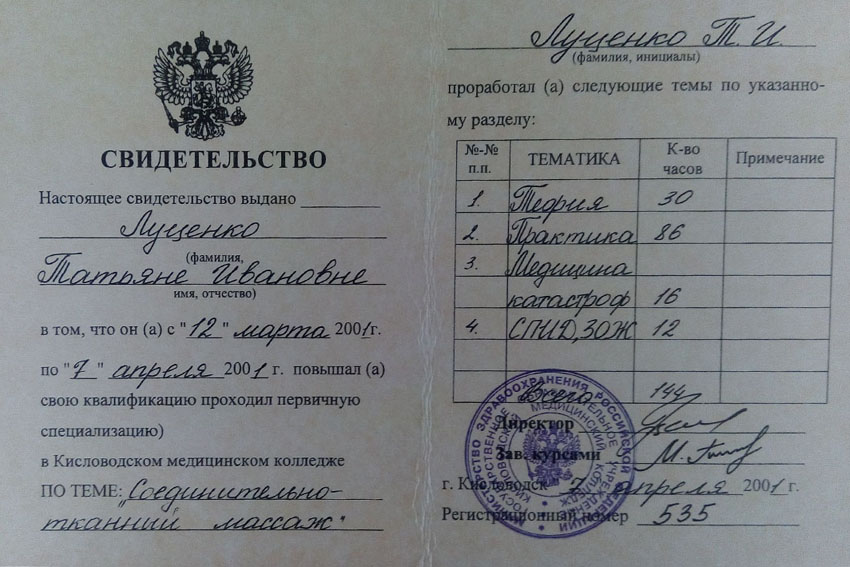 СВИДЕТЕЛЬСТВО
Настоящее свидетельство выдано
Луценко
(фамилия,
Татьяне Ивановне
имя, отчество)
в том, что он (а) с "12" марта 2001г.
по "7" апреля 2001 г. повышал (а)
свою квалификацию проходил первичную
специализацию)
в Кисловодском медицинском колледже
ПО ТЕМЕ: "Соединительно-
тканный массаж"
Луценко Т. И.
(фамилия, инициалы)
проработал (а) следующие темы по указанно-
му разделу:
№-№ п.п. ТЕМАТИКА К-во часов Примечание
1. Теория 30
2. Практика 86
3. Медицина
катастроф 16
4. СПИД, ЗОЖ 12
Всего 144
Директор
Зав. курсами
г. Кисловодск 7 апреля 2001 г.
Регистрационный номер 535
МИНИСТЕРСТВО ЗДРАВООХРАНЕНИЯ РОССИЙСКОЙ ФЕДЕРАЦИИ
КИСЛОВОДСКИЙ МЕДИЦИНСКИЙ КОЛЛЕДЖ